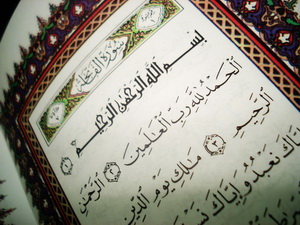 سورة الفاتحة
بِسْمِ اللَّهِ الرَّحْمَٰنِ الرَّحِيمِ ۝١
الْحَمْدُ لِلَّهِ رَبِّ الْعَالَمِينَ ۝٢ الرَّحْمَٰنِ
الرَّحِيمِ ۝٣ مَالِكِ يَوْمِ الدِّينِ
نَعْبُدُ وَإِيَّاكَ